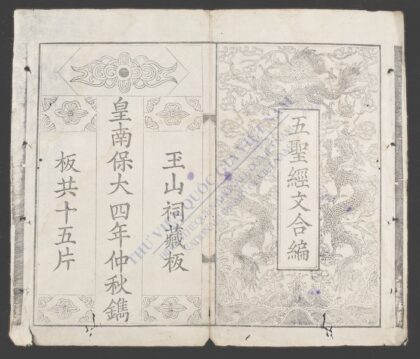 五聖經文合編
玉山祠藏板
皇南保大四年仲秋鐫
板共十五片
THƯ VIỆN QUỐC GIA VIỆT NAM